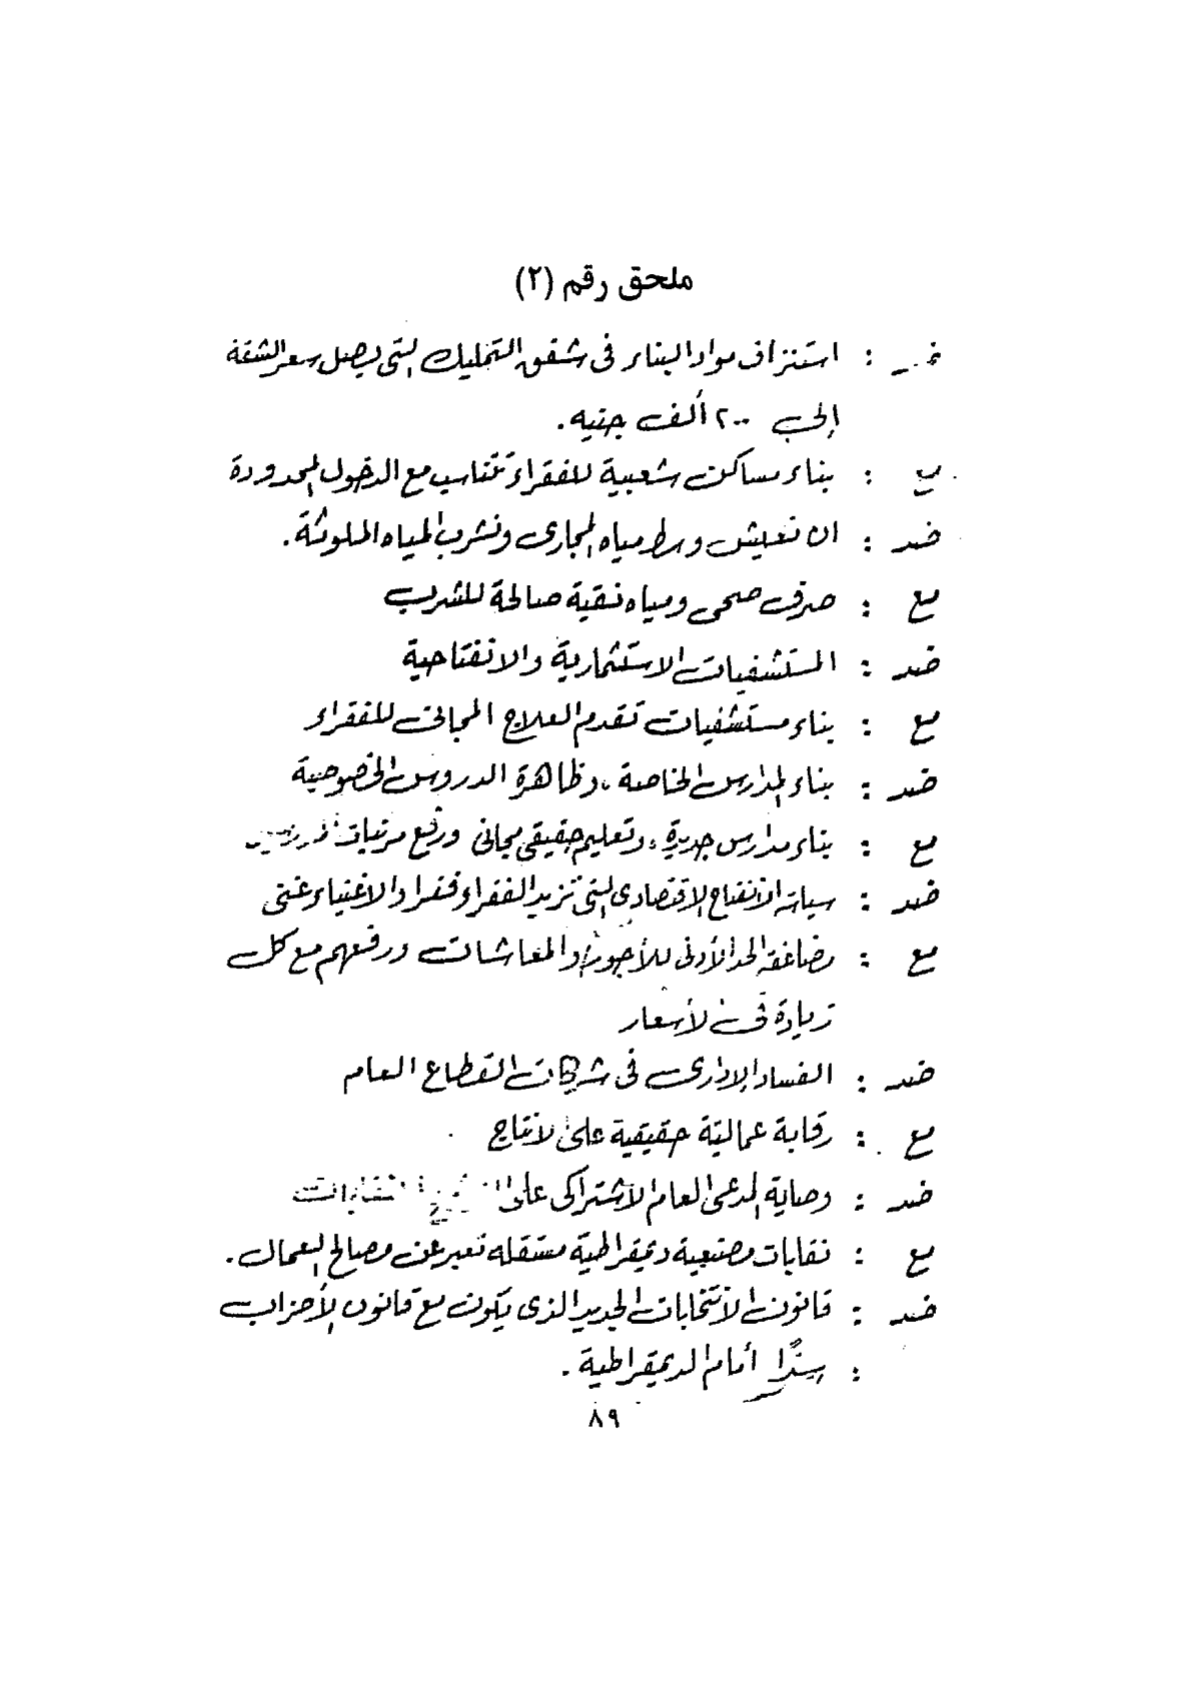 ملحق رقم (٢)
ضد : استنزاف مواد البناء فى شقق التمليك التى يصل سعر الشقة
إلى ٢٠٠ ألف جنيه.
مع : بناء مساكن شعبية للفقراء تتناسب مع الدخول المحدودة
ضد : ان نعيش وسط مياه المجارى ونشرب المياه الملوثة.
مع : صرف صحى ومياه نقية صالحة للشرب
ضد : المستشفيات الاستثمارية والانفتاحية
مع : بناء مستشفيات تقدم العلاج المجانى للفقراء
ضد : بناء المدارس الخاصة، وظاهرة الدروس الخصوصية
مع : بناء مدارس جديدة، وتعليم حقيقى مجانى ورفع مرتبات
ضد : سياسة الانفتاح الاقتصادى التى تزيد الفقراء فقرا والاغنياء غنى
مع : مضاعفة الحد الأدنى للأجور والمعاشات ورفعهم مع كل
زيادة فى الأسعار
ضد : الفساد الإدارى فى شركات القطاع العام
مع : رقابة عمالية حقيقية على الانتاج
ضد : وصاية المدعى العام الاشتراكى على النقابات
مع : نقابات مصنعية ديمقراطية مستقله تعبر عن مصالح العمال.
ضد : قانون الانتخابات الجديد الذى يكون مع قانون الأحزاب
: سدًا أمام الديمقراطية.
٨٩